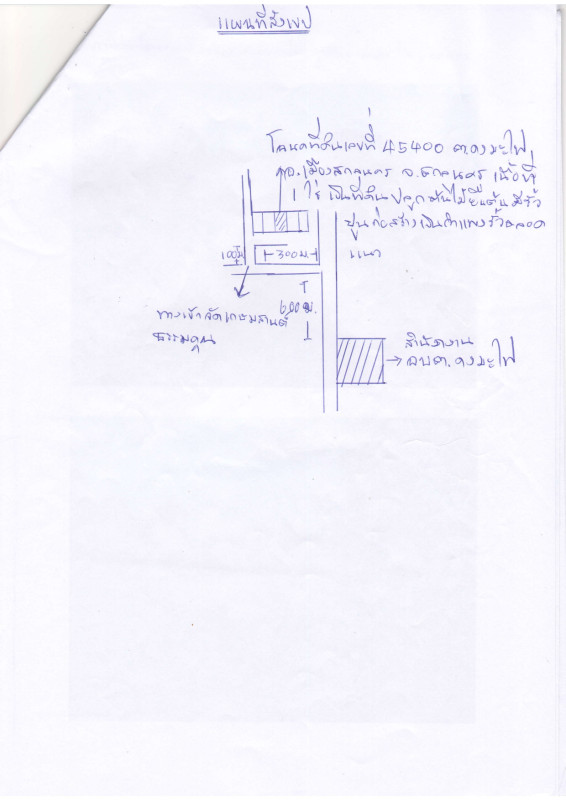 แผนที่สังเขป
โฉนดที่ดินเลขที่ 45400 ต.ดงมะไฟ
อ.เมืองสกลนคร จ.สกลนคร เนื้อที่
1 ไร่ เป็นที่ดินปลูกต้นไม้ยืนต้น มีรั้ว
ปูนก่อสร้างเป็นกำแพงรั้วตลอด
แนว
100ม
300ม.
600ม.
ทางเข้าวัดเกษมสานต์
ธรรมคุณ
สำนักงาน
อบต.ดงมะไฟ